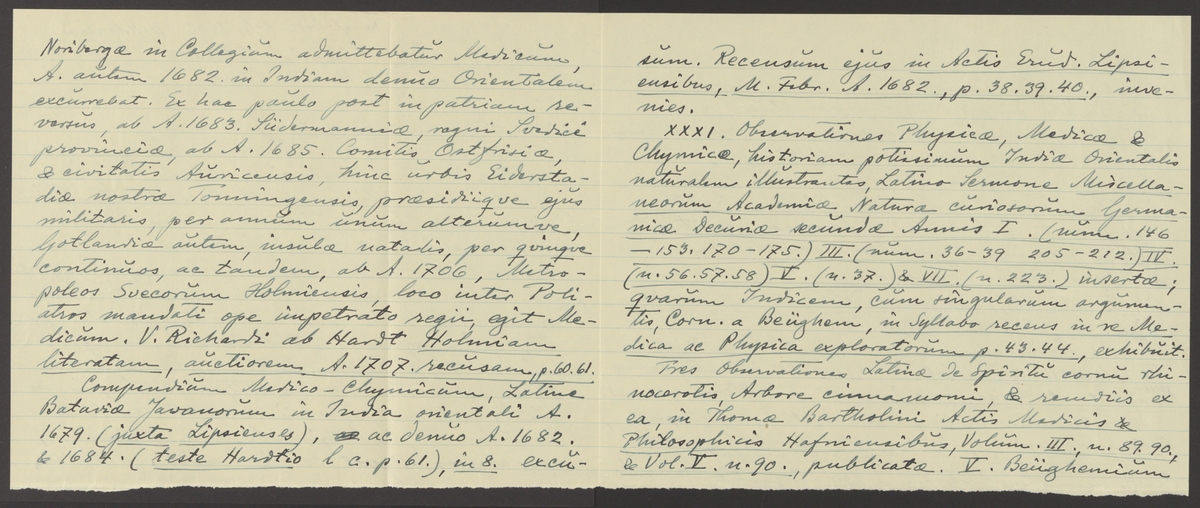 Noribergæ in Collegiüm admittebatür Medicüm,
A. aütem 1682. in Indiam denüo Orientalem
excürrebat. Ex hac paülo post in patriam re-
versüs, ab A. 1683. Südermanniæ, regni Svedici
provinciæ, ab A. 1685. Comitis Ostfrisiæ,
& civitatis Aüricensis, hinc ürbis Eidersta-
diæ nostræ Tonningensis, præsidiiqve ejüs
militaris, per annüm ünüm alterümve,
Gotlandiæ aütem, insülæ natalis, per qvinqve
continüos, ac tandem, ab A. 1706, Metro-
poleos Svecorüm Holmiensis, loco inter Poli-
atros mandati ope impetrato regii, egit Me-
dicüm. V. Richardi ab Hardt Holmiam
literatam, aüctiorem A. 1707. recüsam, p. 60. 61.
Compendiüm Medico-Chymicüm, Latine
Bataviæ Javanorüm in India orientali A.
1679. (jüxta Lipsienses), ac denüo A. 1682.
& 1684. (teste Hardtio l c. p. 61.), in 8. excü-
süm. Recensüm ejüs in Actis Erüd. Lipsi-
ensibüs, M. Febr. A. 1682., p. 38. 39. 40., inve-
nies.
XXXI. Observationes Physicæ, Medicæ &
Chymicæ, historiam potissimüm Indiæ Orientalis
natüralem illüstrantes, Latino Sermone Miscella-
neorüm Academiæ Natüræ cüriosorüm Germa-
nicæ Decüriæ secündæ Annis I. (nüm. 146
— 153. 170 – 175.) III. (nüm. 36-39 205-212.) IV.
(n. 56. 57. 58) V. (n. 37.) & VII. (n. 223.) insertæ;
qvarüm Indicem, cüm singülarüm argümen-
tis, Corn. a Beüghem, in Syllabo recens in re Me-
dica ac Physica exploratorüm p. 43. 44., exhibüit.
Tres Observationes Latinæ de Spiritü cornü rhi-
nocerotis, Arbore cinnamomi, & remediis ex
ea, in Thomæ Bartholini Actis Medicis &
Philosophicis Hafniensibüs, Volüm. III., n. 89. 90,
& Vol. V. n. 90., publicatæ. V. Beüghemiüm